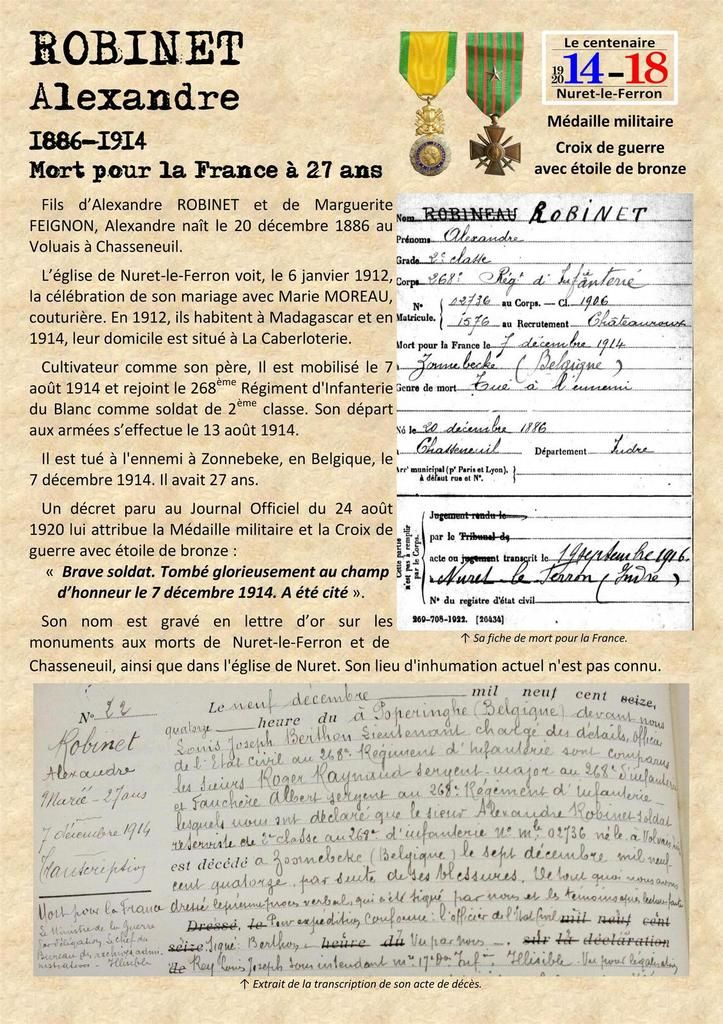 ROBINET
Alexandre
1886-1914
Mort pour la France à 27 ans
Le centenaire
1920 14-18
Nuret-le-Ferron
Médaille militaire
Croix de guerre
avec étoile de bronze
Fils d'Alexandre ROBINET et de Marguerite
FEIGNON, Alexandre naît le 20 décembre 1886 au
Voluais à Chasseneuil.
L'église de Nuret-le-Ferron voit, le 6 janvier 1912,
la célébration de son mariage avec Marie MOREAU,
couturière. En 1912, ils habitent à Madagascar et en
1914, leur domicile est situé à La Caberloterie.
Cultivateur comme son père, Il est mobilisé le 7
août 1914 et rejoint le 268ème Régiment d'Infanterie
du Blanc comme soldat de 2ème classe. Son départ
aux armées s'effectue le 13 août 1914.
Il est tué à l'ennemi à Zonnebeke, en Belgique, le
7 décembre 1914. Il avait 27 ans.
Un décret paru au Journal Officiel du 24 août
1920 lui attribue la Médaille militaire et la Croix de
guerre avec étoile de bronze :
« Brave soldat. Tombé glorieusement au champ
d'honneur le 7 décembre 1914. A été cité ».
Son nom est gravé en lettre d'or sur les
monuments aux morts de Nuret-le-Ferron et de
Chasseneuil, ainsi que dans l'église de Nuret. Son lieu d'inhumation actuel n'est pas connu.
Nom ROBINEAU ROBINET
Prénoms Alexandre
Grade 2e classe
Corps 268e Rég d'Infanterie
N° 02736 au Corps. — Cl. 1906
Matricule. 1576 au Recrutement Châteauroux
Mort pour la France le 7 décembre 1914
à Zonnebecke (Belgique)
Genre de mort Tué à l'ennemi
Né le 20 décembre 1886
à Chasseneuil Département Indre
Arr' municipal (p' Paris et Lyon),
à défaut rue et N°.
Cette partie n'est pas à remplir par le Corps.
Jugement rendu le
par le Tribunal de
acte ou jugement transcrit le 19 septembre 1916
à Nuret le Ferron (Indre)
N° du registre d'état civil
269-708-1922. [26434]
↑ Sa fiche de mort pour la France.
N° 22
Robinet
Alexandre
Marié - 27 ans
7 décembre 1914
Transcription
Mort pour la France
Le Ministre de la Guerre
Par délégation, Le chef du
Bureau des archives admi
nistratives - Illisible
Le neuf décembre mil neuf cent seize,
quatorze heure du à Poperinghe (Belgique) devant nous
Louis Joseph Berthon Lieutenant chargé des détails, Officier
de l'Etat civil au 268e Régiment d'Infanterie sont comparus
les sieurs Roger Raynaud sergent-major au 268e d'infanterie
et Fauchère Albert sergent au 268e Régiment d'Infanterie
lesquels nous ont déclaré que le sieur Alexandre Robinet soldat
réserviste de 2e classe au 268e d'infanterie N° mle 02736 né le à
est décédé à Zonnebecke (Belgique) le sept décembre mil neuf
cent quatorze par suite de ses blessures. De tout quoi nous avons
dressé le présent procès verbal qui a été signé par nous et les témoins après lecture faite
Dressé, le Pour expédition conforme : l'officier de l'Etat Civil mil neuf cent
seize Signé : Berthon heure du Vu par nous sur la déclaration
de Rey Louis Joseph sous intendant mre 17e Don Infie Illisible. Vu pour légalisation
↑ Extrait de la transcription de son acte de décès.